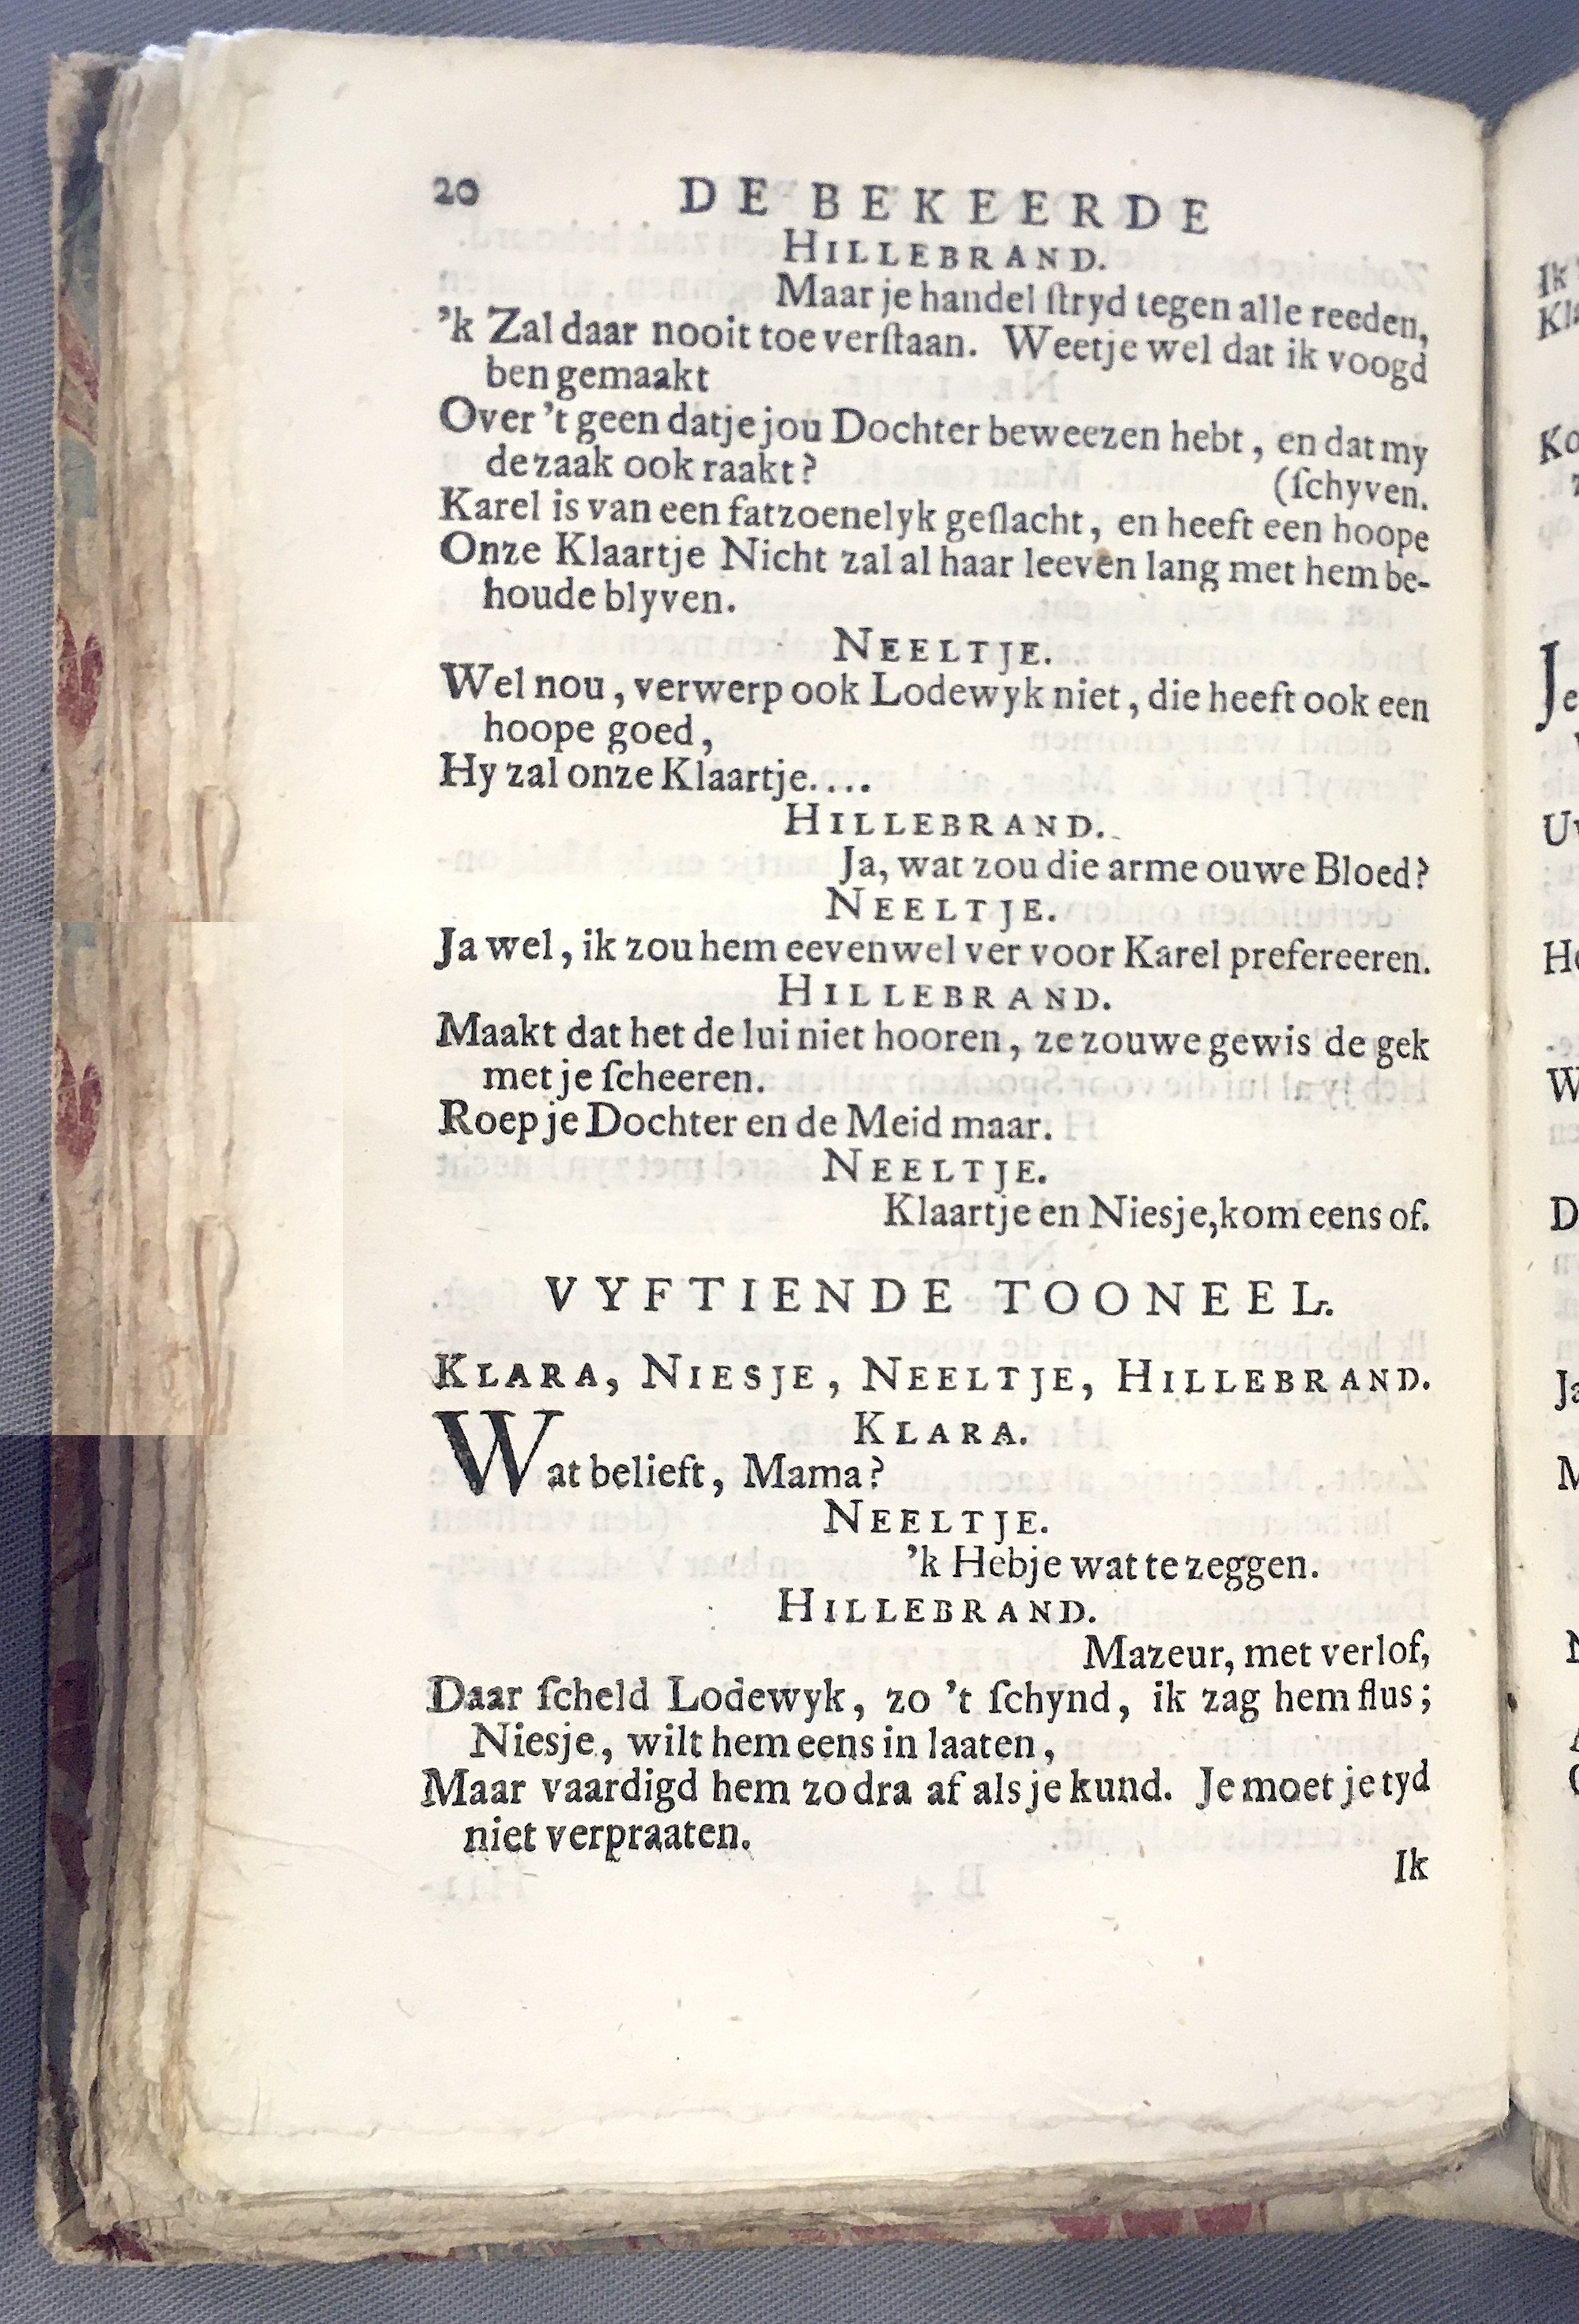 20 DE BEKEERDE
HILLEBRAND.
Maar je handel ſtryd tegen alle reeden,
'k Zal daar nooit toe verſtaan. Weetje wel dat ik voogd
ben gemaakt
Over 't geen datje jou Dochter beweezen hebt, en dat my
de zaak ook raakt?
(ſchyven.
Karel is van een fatzoenelyk geſlacht, en heeft een hoope
Onze Klaartje Nicht zal al haar leeven lang met hem be-
houde blyven.
NEELTJE.
Wel nou, verwerp ook Lodewyk niet, die heeft ook een
hoope goed,
Hy zal onze Klaartje....
HILLEBRAND.
Ja, wat zou die arme ouwe Bloed?
NEELTJE.
Ja wel, ik zou hem eevenwel ver voor Karel prefereeren.
HILLEBRAND.
Maakt dat het de lui niet hooren, ze zouwe gewis de gek
met je ſcheeren.
Roep je Dochter en de Meid maar.
NEELTJE.
Klaartje en Niesje, kom eens of.
VYFTIENDE TOONEEL.
KLARA, NIESJE, NEELTJE, HILLEBRAND.
KLARA.
Wat belieft, Mama?
NEELTJE.
'k Heb je wat te zeggen.
HILLEBRAND.
Mazeur, met verlof,
Daar ſcheld Lodewyk, zo 't ſchynd, ik zag hem flus;
Niesje, wilt hem eens in laaten,
Maar vaardigd hem zo dra af als je kund. Je moet je tyd
niet verpraaten.
Ik